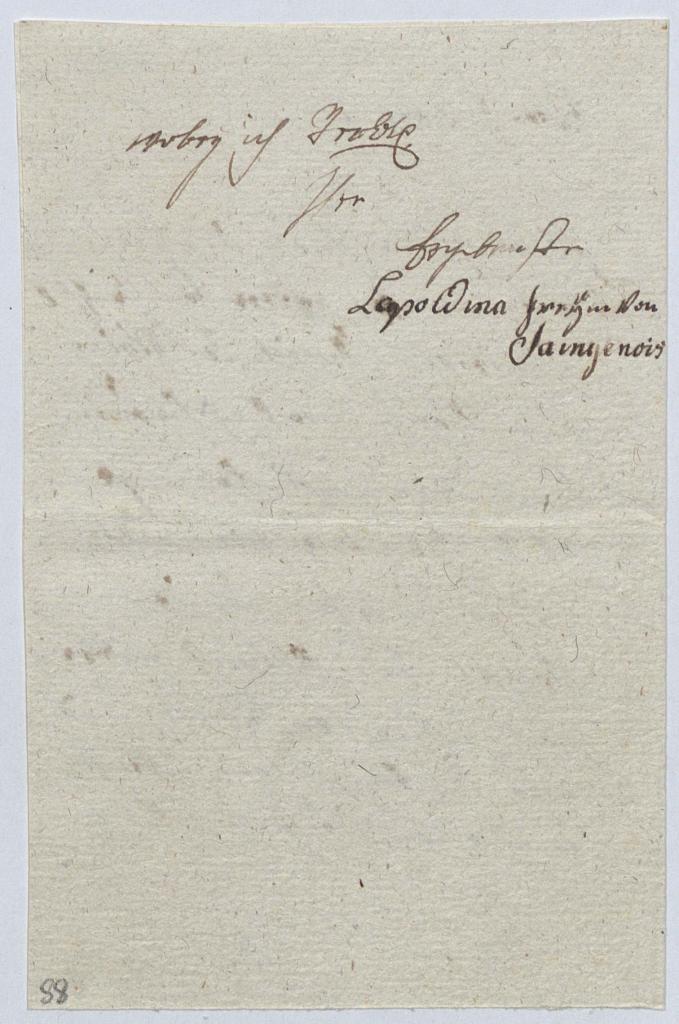 wobey ich
Ihr
Ergebenste
Lepoldina freÿin von
Saingenois
88